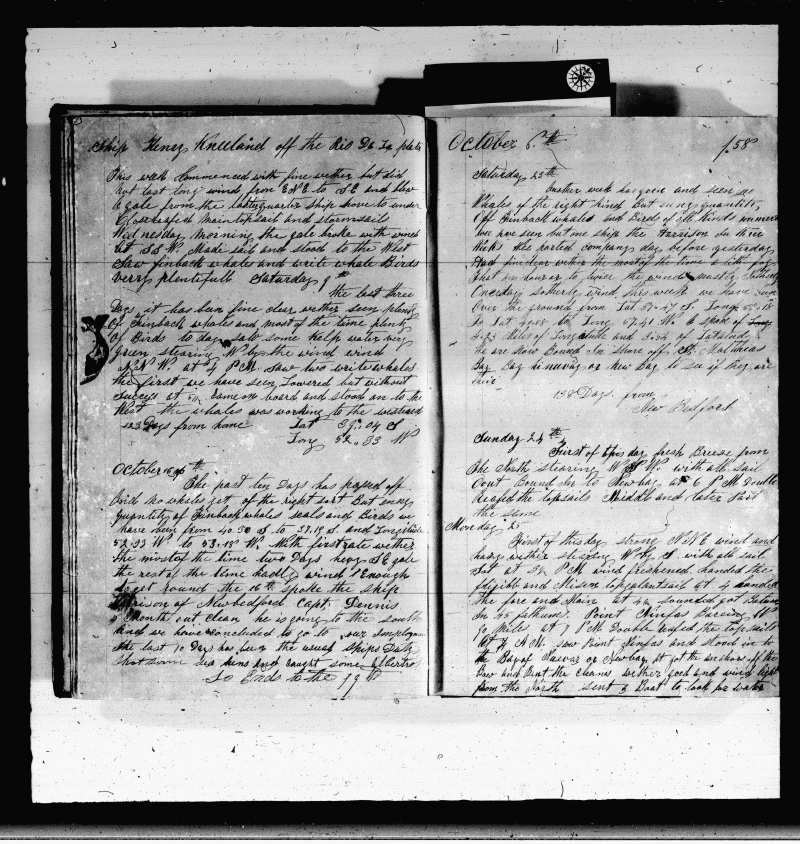 Ship Henry Kneeland off the Rio De La plata
This week Commenced with fine wether but did
not last long wind from ENE to SE and blew
a gale from the latter quarter Ship hove to under
Close reafed Maintopsail and stormsail
Wednesday morning the gale broke with wind
at SSW. Made sail and stood to the West
Saw finback whales and write whale Birds
very plentifull Saturday 9th
the last three
Days it has been fine clear wether seen plenty
Of Finback whales and most of the time plenty
Of Birds to day saw some kelp water very
green stearing W by the wind wind
NNW at 4 PM saw two write whales
the first we have seen Lowered but without
success at came on board and stood on to the
West the whales was working to the westward
123 Days from home Lat 39..04 S
Long 52..33 W
October 19th
The past ten Days has passed off
and no whales yet of the right sort But any
quantity of Finback whales seals and Birds we
have been from 40.30 S to 37.19 S. and Longitude
52.33 W to 53.18 W. With first rate wether
the most of the time two Days heavy SE gale
the rest of the time hadly wind Enough
to get round the 16th Spoke the Ship
Harrison of Newbedford Capt. Dennis
Month out clean he is going to the south
and we have concluded to go to our Imployment
the last 10 Days has been the usual Ships Duty
Shot some Sea hens and caught some Albertros
So Ends to the 19th
October 6th 158
Saturday 23th
Another week has gone and seen no
Whales of the right kind But any quantity
Off Finback whales and Birds of all Kinds
We have seen but one ship the Harrison in three
Weeks She parted company day before yesterday
Had fine clear wether the most of the time a little fog
Just an hour or to twice the wind mostly
One day sotherly wind this week we have
Over the ground from Lat S. Long
To Lat to Long 57.41 W. a space of
4.23 Miles of Longitude and of Latatude
We are now Bound In Shore off St Mathews
Bay or New Bay to see if they are
there
138 Days from
New Bedford
Sunday 24th
First of this day fresh Breeze from
the North stearing W N W. with all sail
Cout Bound In to New bay at 6 PM Double
reafed the topsails Middle and later Part
the same
Monday 25
First of this day strong NNE wind and
hazy wether stearing W by S with all sail
Set at PM wind freshened. Handed the
flyigib and Misen topgalantsail at 4 Handed
the fore and Main at sounded got bottom
In fathoms. Point Ninfas Bearing W
50 Miles at 7 PM Double reafed the topsails
At AM. saw Point Ninfas and stood in to
the Bay of or New bay got the anchors off the
Bow and Bent the cleanes wether good and wind light
from the North sent a Boat to look for water